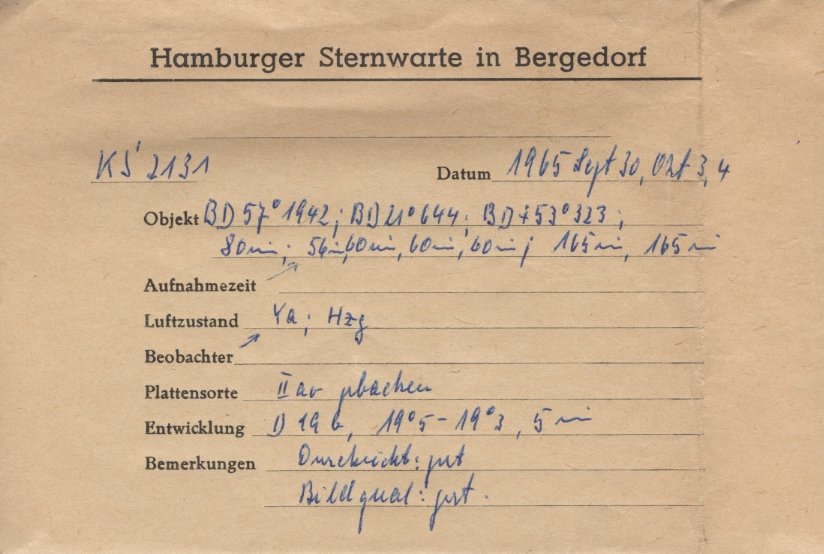 Hamburger Sternwarte in Bergedorf
KS' 2131
Datum 1965 Sept 30, Okt 3, 4
Objekt BD 57° 1942; BD 21° 644; BD +53° 323;
80min; 56min, 60min, 60min, 60min; 165min, 165min
Aufnahmezeit
Luftzustand Ya; Hzg
Beobachter
Plattensorte IIaO gbacken
Entwicklung D 19b, 19°5-19°3, 5min
Bemerkungen Durchsicht: gut
Bildqual: gut.